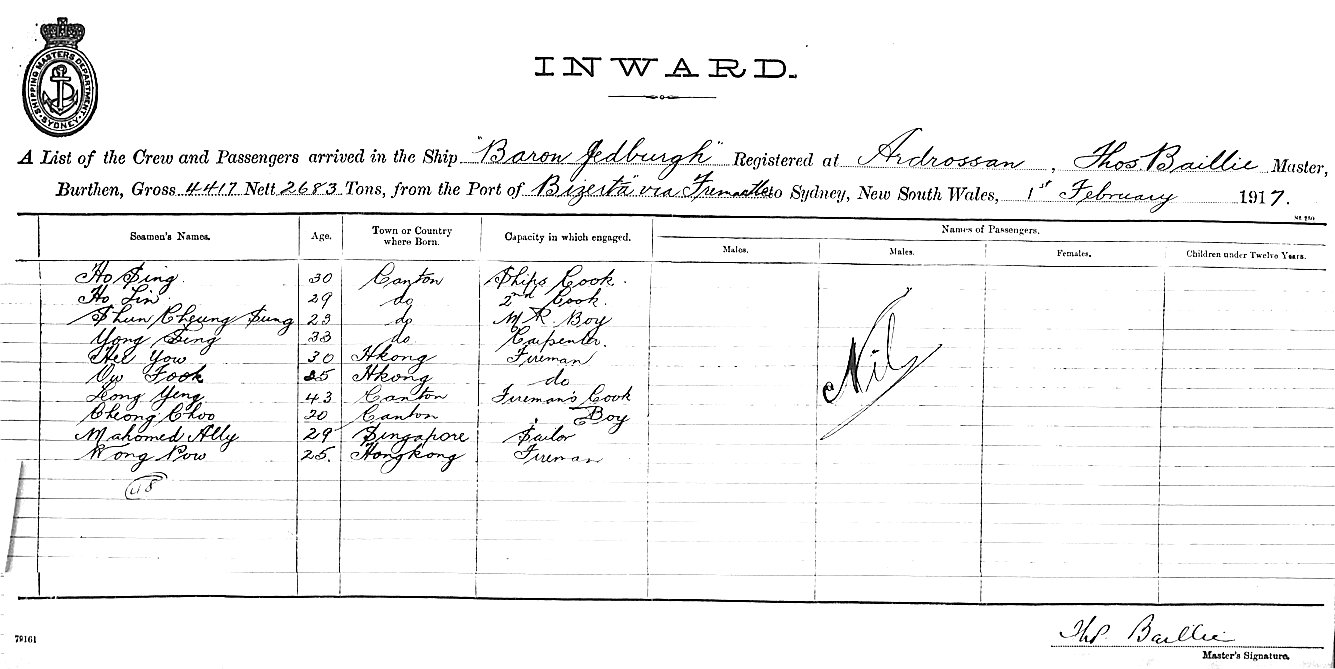 SHIPPING MASTERS DEPARTMENT. SYDNEY.
INWARD.
A List of the Crew and Passengers arrived in the Ship "Baron Jedburgh" Registered at Ardrossan, Thos. Baillie Master,
Burthen, Gross 4417 Nett 2683 Tons, from the Port of Bizerta via Fremantle to Sydney, New South Wales, 1st February 1917.
Seamen's Names. Age. Town or Country where Born. Capacity in which engaged. Names of Passengers.
Males. Males. Females. Children under Twelve Years.
Ho Sing 30 Canton Ships Cook.
Ho Lin 29 do 2nd Cook.
Shun Cheung Sung 23 do M R Boy
Yong Sing 33 do Carpenter.
Hee You 30 Hkong Fireman
Ow Fook 25 Hkong do
Leong Yeng 43 Canton Fireman's Cook
Cheong Choo 20 Canton " Boy
Mahomed Ally 29 Singapore Sailor
Wong Pow 25. Hongkong Fireman
Nil
48
Thos. Baillie
79161
Master's Signature.